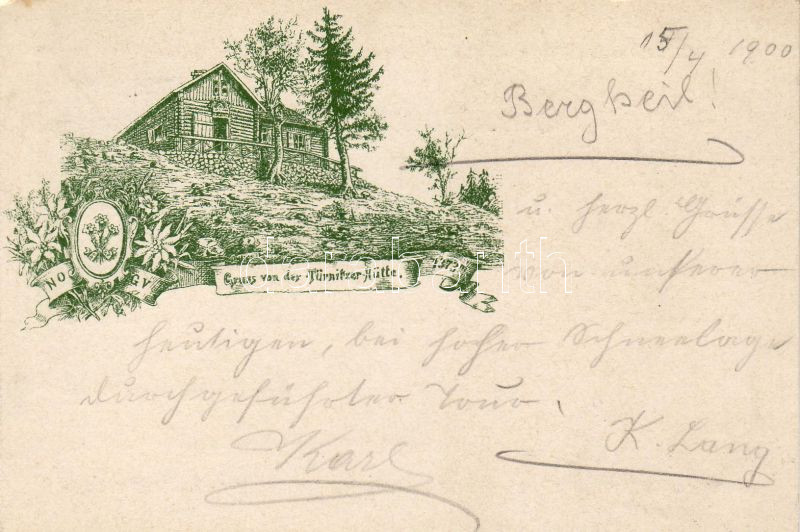 15/4 1900
Bergheil!
u. herzl. Grüsse
von unserer
heutigen, bei hoher Schneelage
durchgeführten Tour.
Karl
K. Lang
NO GV
Gruss von der Türnitzer-Hütte.